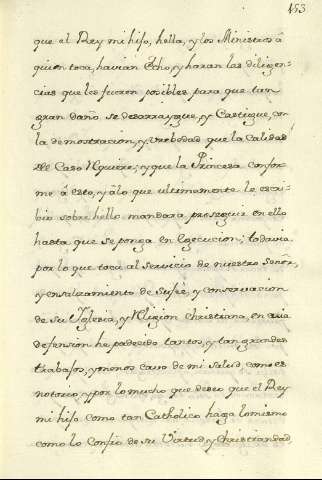 453
que el Rey mi hijo, hella, y los Ministros â
quien toca, havian Echo, y haran las diligen-
cias que les fueren posibles para que tan
gran daño se desarraygue, y Castigue, con
la demostracion, y brebedad que la Calidad
del Caso Requiere; y que la Princesa confor-
me â esto, y âlo que ultimamente le escri-
bio sobre hello mandara proseguir en ello
hasta que se ponga en Egecucion; todavia
por lo que toca al servicio de nuestro Señor,
y ensalzamiento de su feè, y conservacion
de su Yglesia, y Religion christiana, en cuia
defension he padecido tantos, y tan grandes
trabajos, y menos cavo de mi salud, como es
notorio, y por lo mucho que deseo que el Rey
mi hijo como tan Catholico haga lo mismo
como lo Confio de su Virtud, y Christiandad